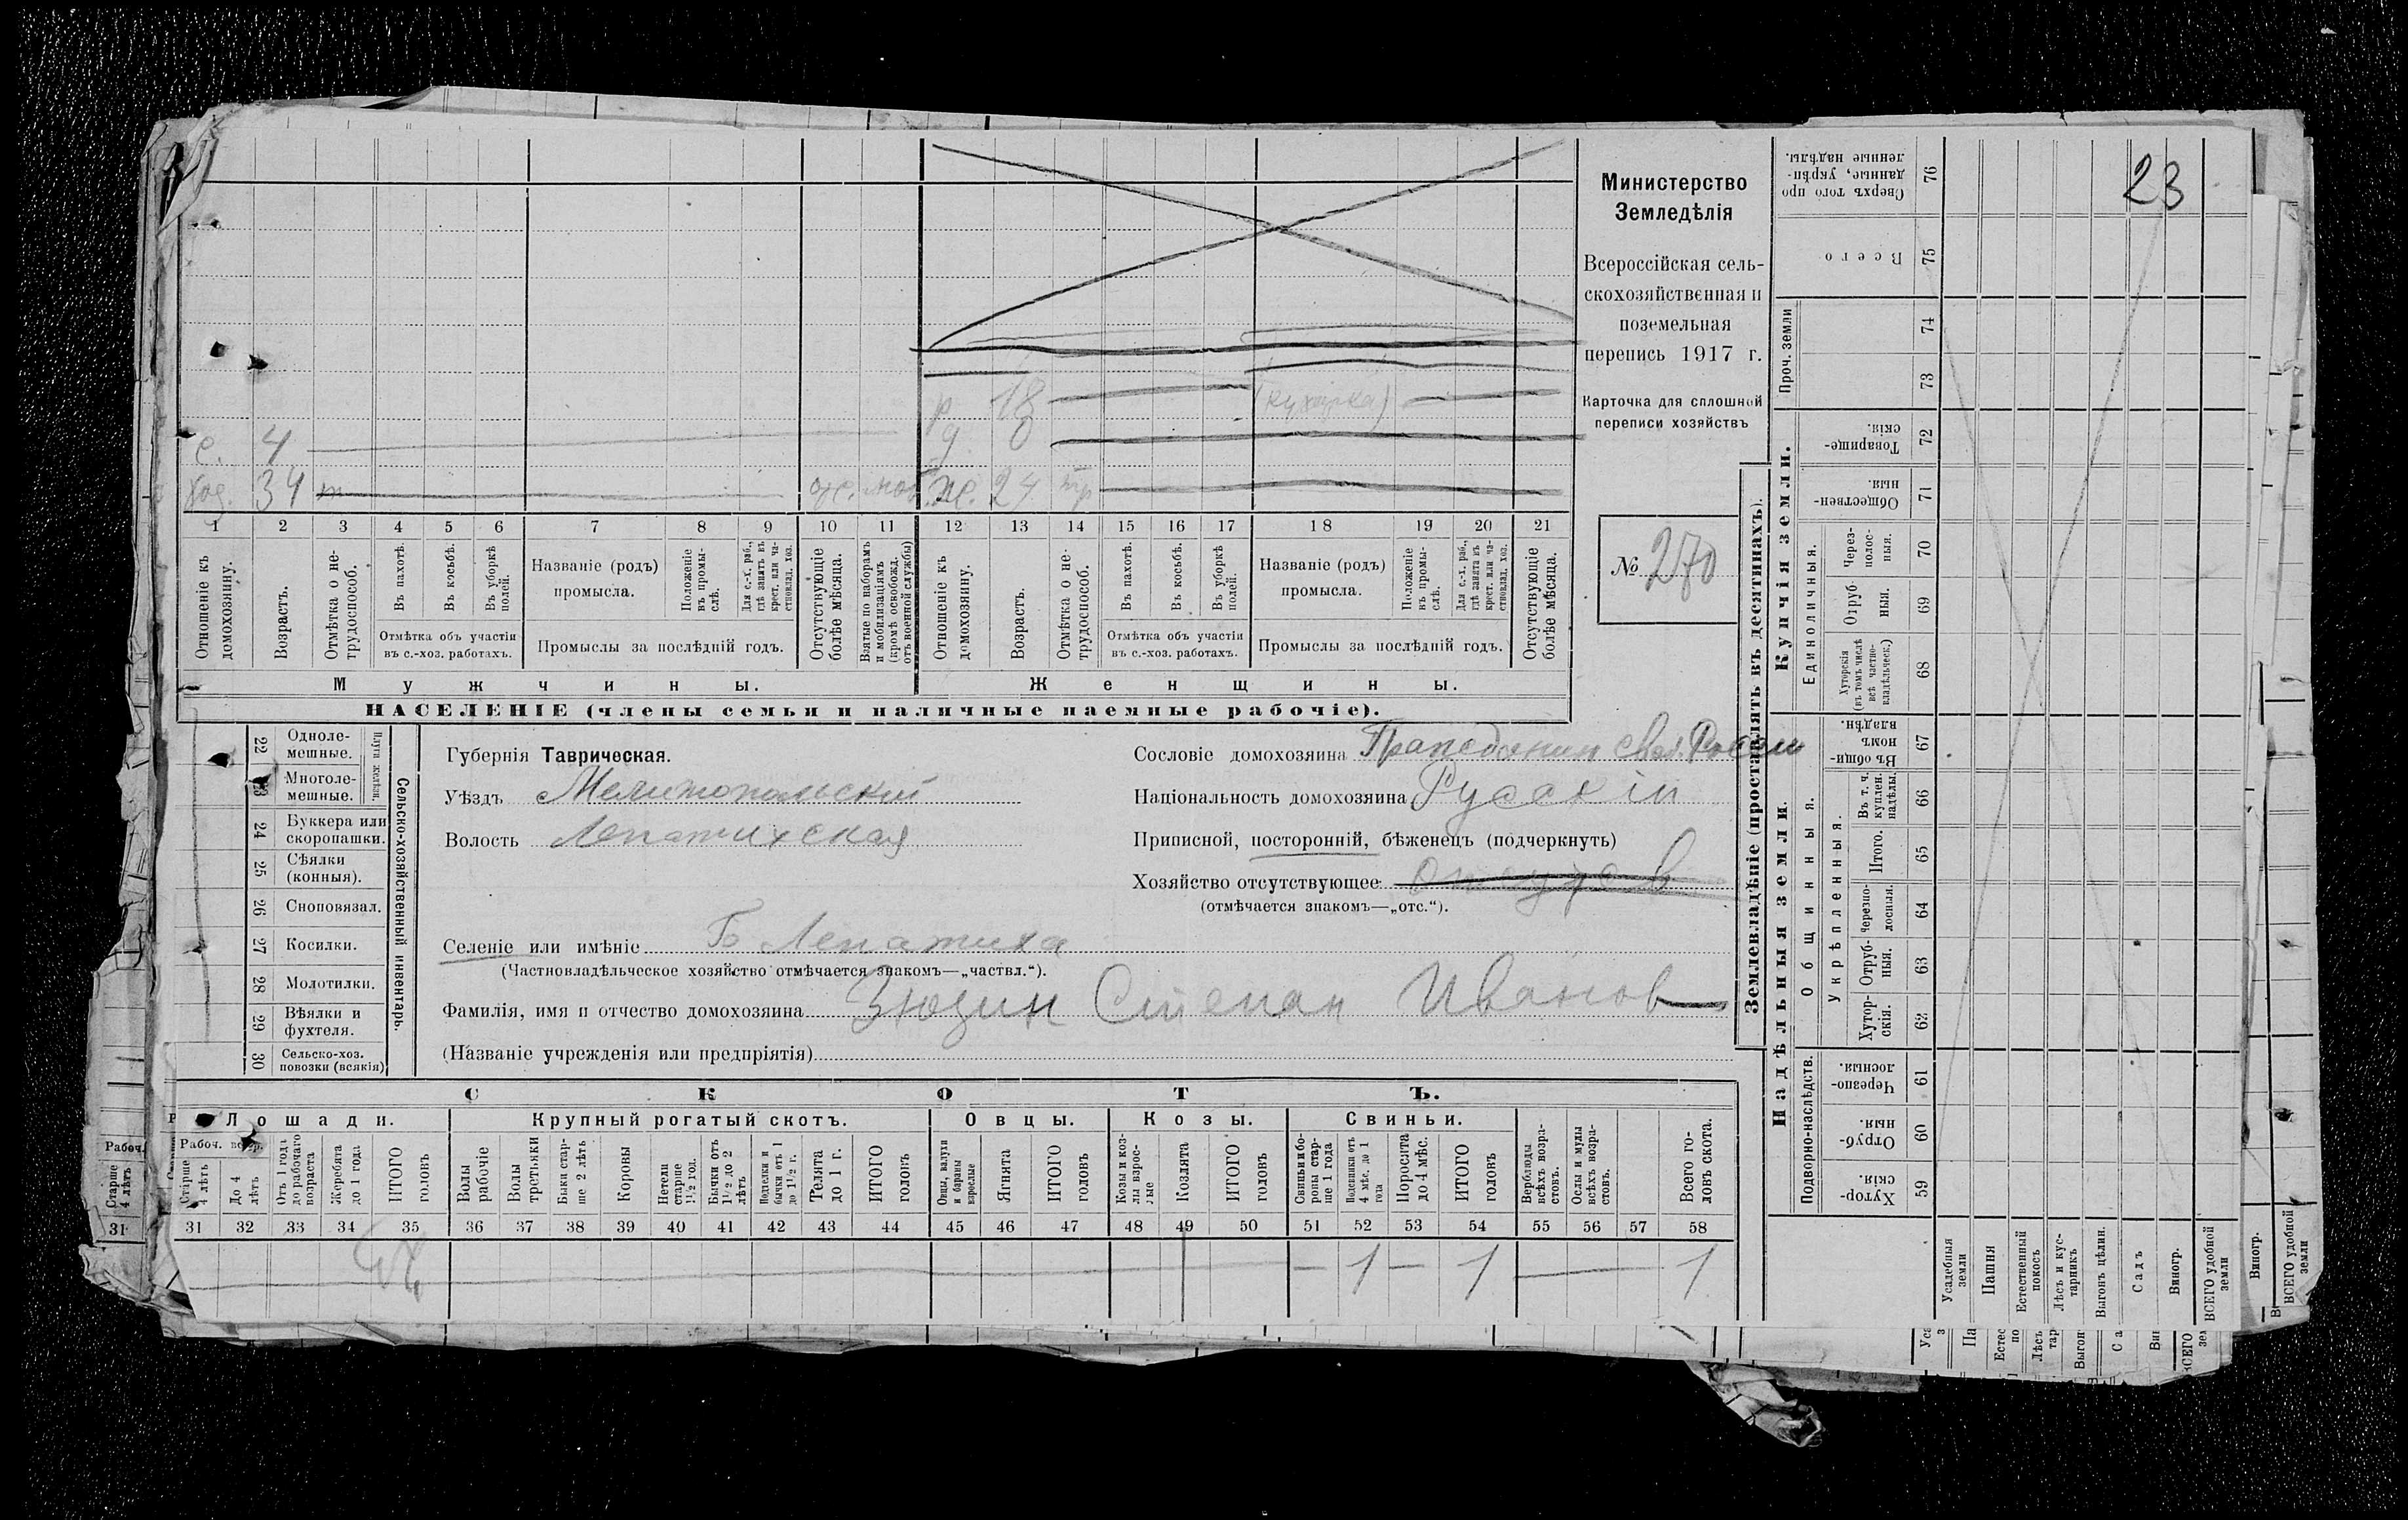 23
Министерство
Земледѣлія
Всероссійская сель-
скохозяйственная и
поземельная
перепись 1917 г.
Карточка для сплошной
переписи хозяйствъ
№ 270
р. 18 (кухарка)
с. 4 д. 0
хоз. 34 т отс. моб. ж. 24 тр
1 2 3 4 5 6 7 8 9 10 11 12 13 14 15 16 17 18 19 20 21
Отношеніе къ домохозяину.
Возрастъ.
Отмѣтка о не-трудоспособ.
Въ пахотѣ.
Въ косьбѣ.
Въ уборкѣ полей.
Отмѣтка объ участіи
въ с.-хоз. работахъ.
Названіе (родъ)
промысла.
Положеніе въ промы-слѣ.
Для с.-х. раб., гдѣ занятъ въ крест. или ча-стновлад. хоз.
Промыслы за послѣдній годъ.
Отсутствующіе болѣе мѣсяца.
Взятые по наборамъ и мобилизаціямъ (кромѣ освобожд. отъ военной службы)
Отношеніе къ домохозяину.
Возрастъ.
Отмѣтка о не-трудоспособ.
Въ пахотѣ.
Въ косьбѣ.
Въ уборкѣ полей.
Отмѣтка объ участіи
въ с.-хоз. работахъ.
Названіе (родъ)
промысла.
Положеніе въ промы-слѣ.
Для с.-х. раб., гдѣ занята въ крест. или ча-стновлад. хоз.
Промыслы за послѣдній годъ.
Отсутствующіе болѣе мѣсяца.
Мужчины. Женщины.
НАСЕЛЕНІЕ (члены семьи и наличные наемные рабочіе).
Сельско-хозяйственный инвентарь.
Плуги желѣзн.
22 Одноле-мешные.
23 Многоле-мешные.
24 Буккера или скоропашки.
25 Сѣялки (конныя).
26 Сноповязал.
27 Косилки.
28 Молотилки.
29 Вѣялки и фухтеля.
30 Сельско-хоз. повозки (всякія)
Губернія Таврическая.
Уѣздъ Мелитопольский
Волость Лепатихская
Сословіе домохозяина Гражданин своб. Росси
Національность домохозяина Русскій
Приписной, посторонній, бѣженецъ (подчеркнуть)
Хозяйство отсутствующее
(отмѣчается знакомъ—„отс.“).
Селеніе или имѣніе Б Лепатиха
(Частновладѣльческое хозяйство отмѣчается знакомъ—„частвл.“).
Фамилія, имя и отчество домохозяина Зюзин Степан Иванов
(Названіе учрежденія или предпріятія)
СКОТЪ.
Лошади. Крупный рогатый скотъ. Овцы. Козы. Свиньи.
Рабоч. возр.
Старше 4 лѣтъ
До 4 лѣтъ
Отъ 1 года до рабочаго возраста
Жеребята до 1 года
ИТОГО головъ
Волы рабочіе
Волы третьяки
Быки стар-ше 2 лѣтъ
Коровы
Нетели старше 1½ год.
Бычки отъ 1½ до 2 лѣтъ
Подтелки и бычки отъ 1 до 1½ г.
Телята до 1 г.
ИТОГО головъ
Овцы, валухи и бараны взрослые
Ягнята
ИТОГО головъ
Козы и коз-лы взрос-лые
Козлята
ИТОГО головъ
Свиньи и бо-ровы стар-ше 1 года
Подсвинки отъ 4 мѣс. до 1 года
Поросята до 4 мѣс.
ИТОГО головъ
Верблюды всѣхъ возра-стовъ.
Ослы и мулы всѣхъ возра-стовъ.
Всего го-ловъ скота.
31 32 33 34 35 36 37 38 39 40 41 42 43 44 45 46 47 48 49 50 51 52 53 54 55 56 57 58
— 1 — 1 — 1
Землевладѣніе (проставлять въ десятинахъ).
Надѣльныя земли. Купчія земли. Проч. земли
Подворно-наслѣдств.
Общинныя.
Укрѣпленныя.
Единоличныя.
59 Хутор-скія.
60 Отруб-ныя.
61 Черезпо-лосныя.
62 Хутор-скія.
63 Отруб-ныя.
64 Черезпо-лосныя.
65 Итого.
66 Въ т. ч. куплен. надѣлы.
67 Въ общи-номъ владѣн.
68 Хуторскія (въ томъ числѣ всѣ частно-владѣльческ.)
69 Отруб-ныя.
70 Через-полос-ныя.
71 Обществен-ныя.
72 Товарище-скія.
73
74
75 Всего
76 Сверхъ того про-данные, укрѣп-ленные надѣлы.
Усадебныя земли
Пашня
Естественный покосъ
Лѣсъ и кус-тарникъ
Выгонъ цѣлин.
Садъ
Виногр.
ВСЕГО удобной земли
Виногр.
ВСЕГО удобной земли
Рабоч.
Старше 4 лѣтъ
31